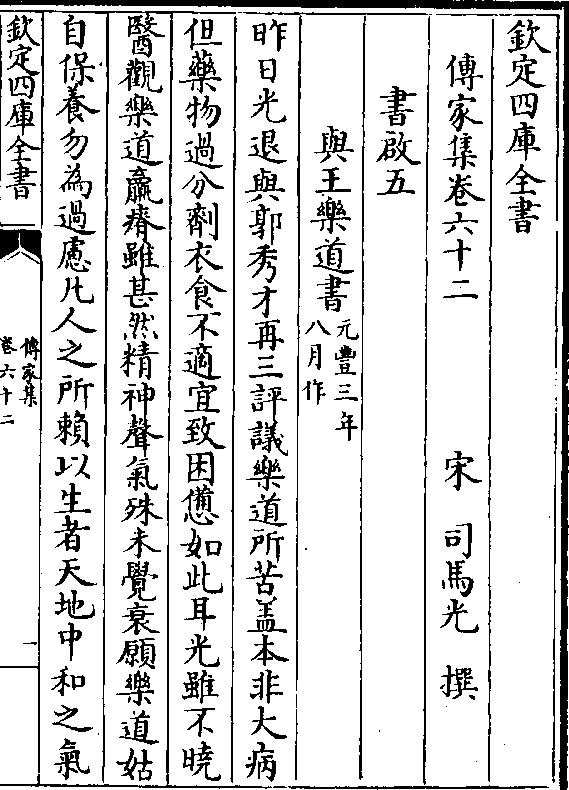 欽定四庫全書
傳家集卷六十二　宋　司馬光　撰
書啟五
與王樂道書元豐三年八月作
昨日光退與郭秀才再三評議樂道所苦盖本非大病
但藥物過分劑衣食不適宜致困憊如此耳光雖不曉
醫觀樂道羸瘠雖甚然精神聲氣殊未覺衰願樂道姑
自保養勿為過慮凡人之所賴以生者天地中和之氣
欽定四庫全書
傳家集
卷六十二
一